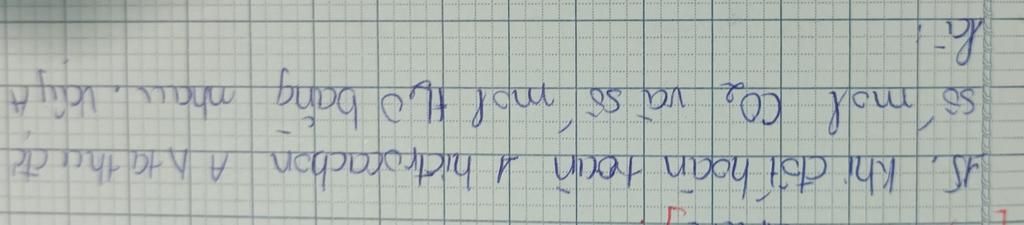 15. Khi đốt hoàn toàn 1 hiđrocacbon A ta thu đc
số mol CO2 và số mol H2O bằng nhau. Vậy A
là: